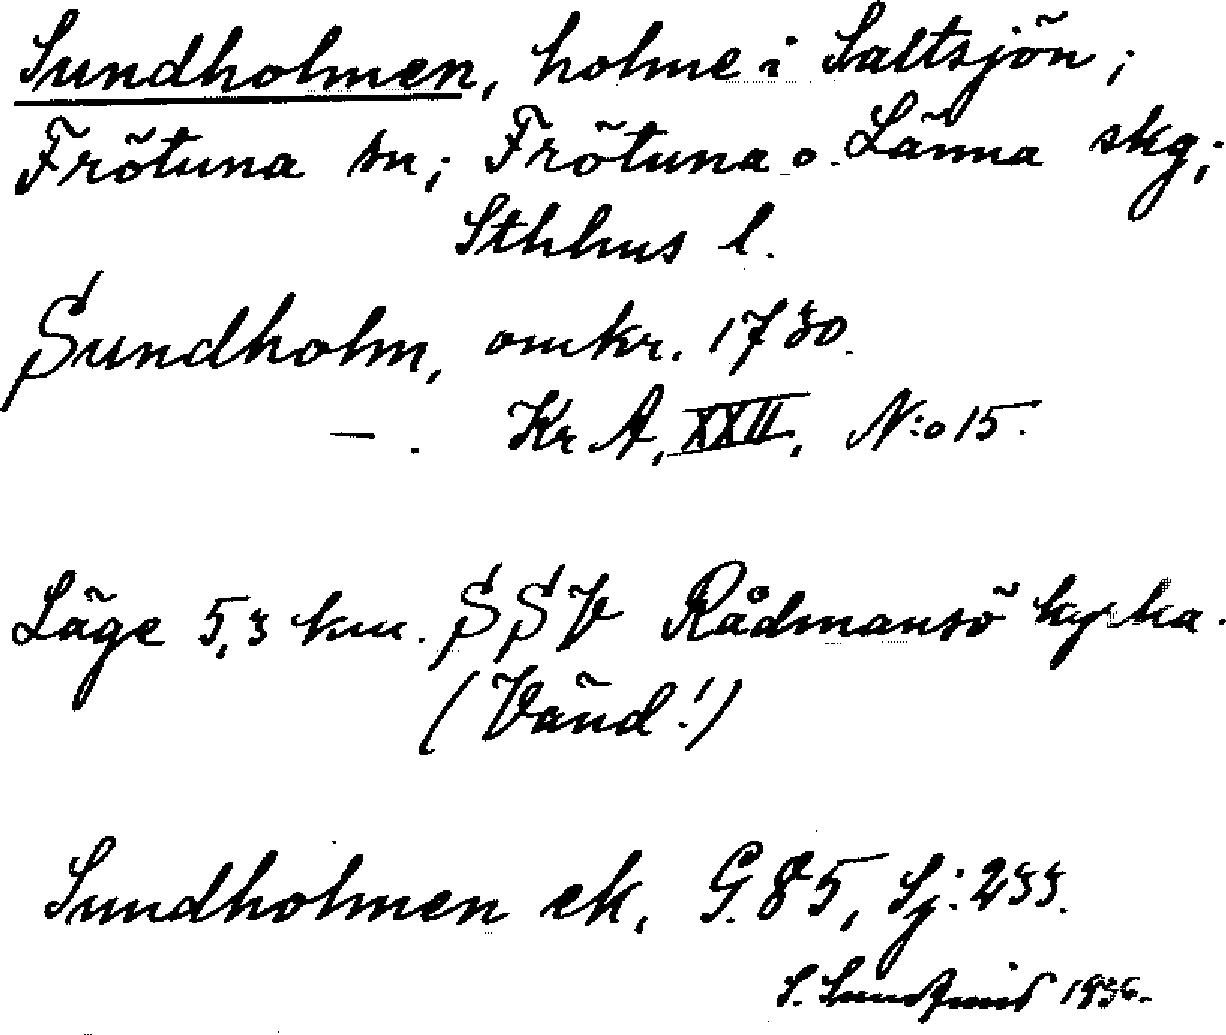 Sundholmen, holme i Saltsjön;
Frötuna sn; Frötuna o. Länna skg;
Sthlms l.
Sundholm, omkr. 1730.
— . Kr A, XXII, N:o 15.
Läge 5,3 km. SSV Rådmansö kyrka.
(Vänd!)
Sundholmen ek, G. 85, Sj: 233.
S. 1936.